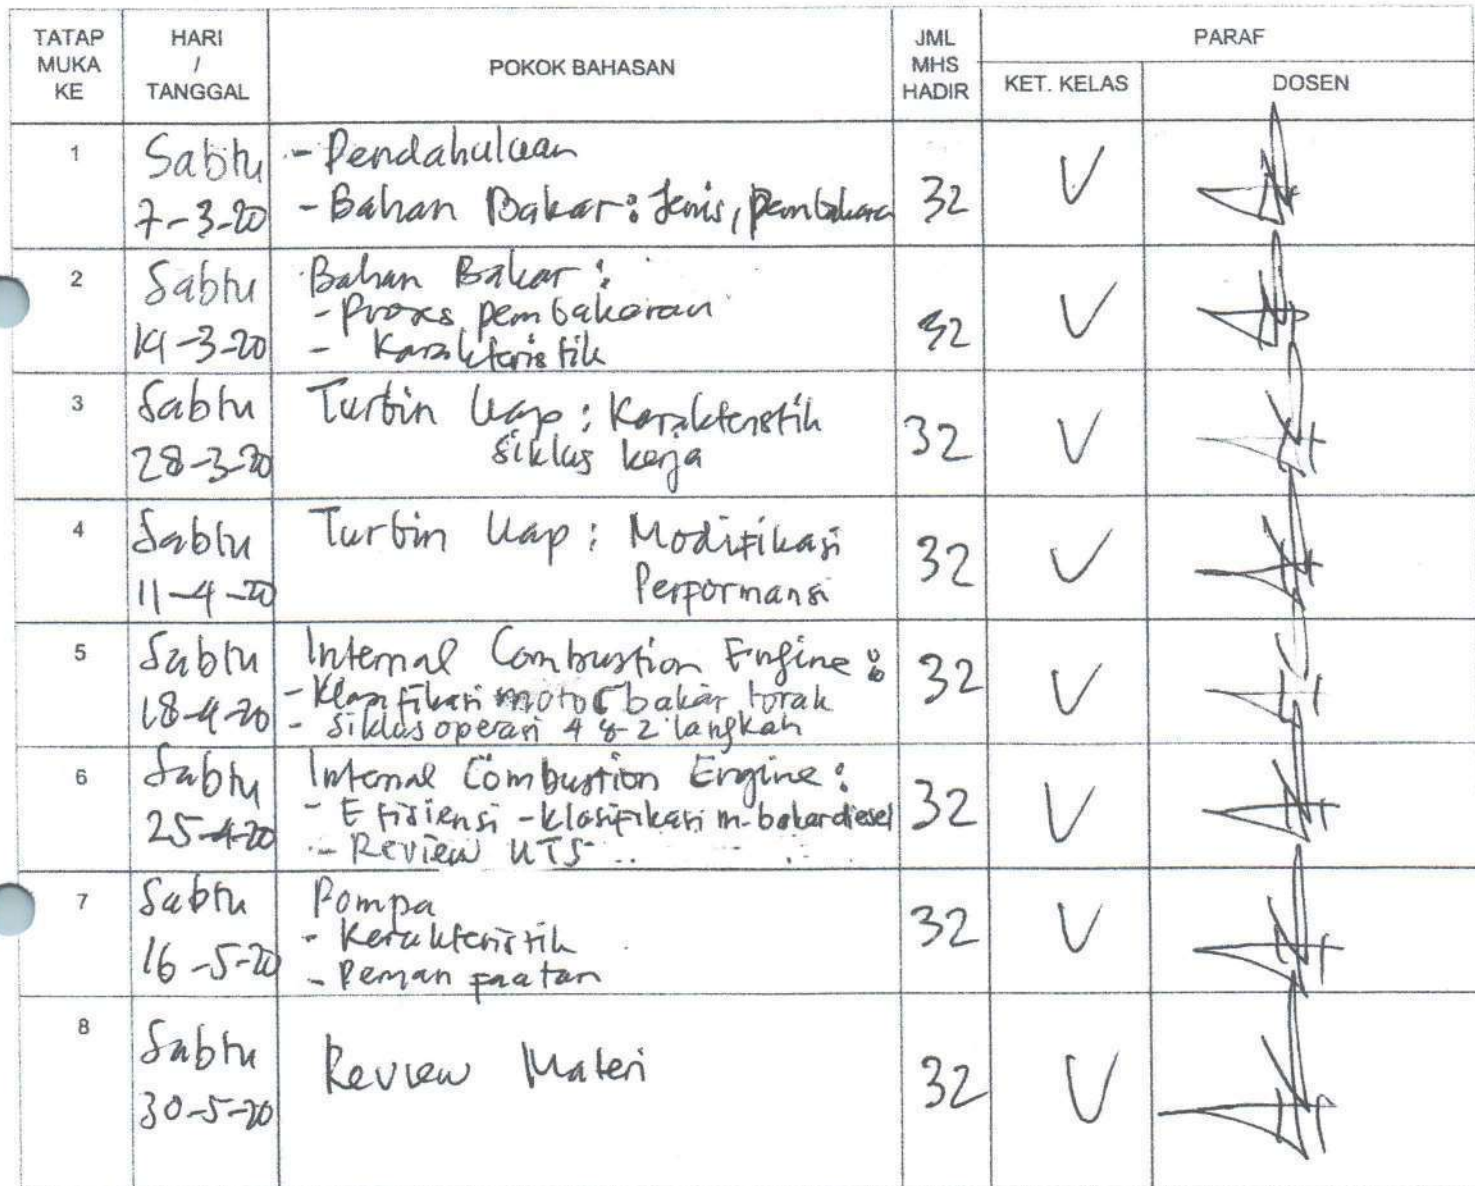 TATAP MUKA KE
HARI / TANGGAL
POKOK BAHASAN
JML MHS HADIR
PARAF
KET. KELAS
DOSEN
1
Sabtu
7-3-20
- Pendahuluan
- Bahan Bakar: Jenis, pembakara
32
V
2
Sabtu
14-3-20
Bahan Bakar:
- Proses pembakaran
- Karakteristik
32
V
3
Sabtu
28-3-20
Turbin Uap: Karakteristik
siklus kerja
32
V
4
Sabtu
11-4-20
Turbin Uap: Modifikasi
Performansi
32
V
5
Sabtu
18-4-20
Internal Combustion Engine:
- Klasifikasi motor bakar torak
- Siklus operasi 4 & 2 langkah
32
V
6
Sabtu
25-4-20
Internal Combustion Engine:
- Efisiensi - klasifikasi m. bakar diesel
- Review UTS
32
V
7
Sabtu
16-5-20
Pompa
- Karakteristik
- Pemanfaatan
32
V
8
Sabtu
30-5-20
Review Materi
32
V